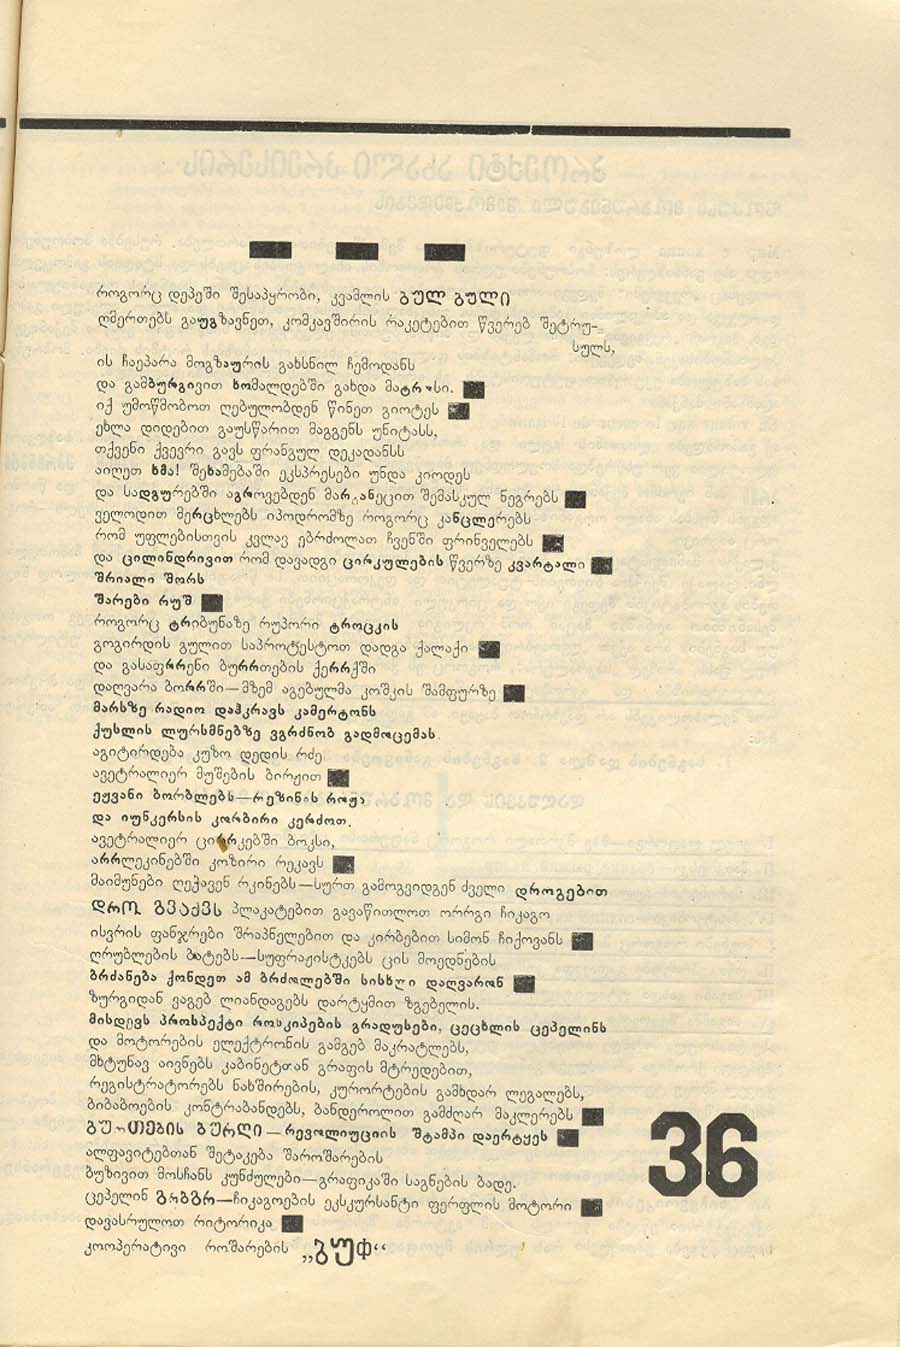 როგორც დეპეში შესაპყრობი, კვამლის გულ გული
ღმერთებს გაუგზავნეთ, კომკავშირის რაკეტებით წვერებ შეტრუ-
სულს,
ის ჩაეპარა მოგზაურის გახსნილ ჩემოდანს
და გამბურგივით ხომალდებში გახდა
იქ უმოწმობოთ ღებულობდენ წინეთ გიოტეს
ეხლა დიდებით გაუსწარით მაგგენს უნიტასს,
თქვენი ქვევრი გავს ფრანგულ დეკადანსს
აიღეთ ხმა! შეხამებაში ექსპრესები უნდა კიოდეს
და სადგურებში აგროვებდენ შემასკულ ნეგრებს
ველოდით მერცხლებს იპოდრომზე როგორც კანცლერებს
რომ უფლებისთვის კვლავ ებრძოლათ ჩვენში ფრინველებს
და ცილინდრივით რომ დავადგი ცირკულების წვერზე კვარტალი
შრიალი შორს
შარები რუშ
როგორც ტრიბუნაზე რუპორი ტროცკის
გოგირდის გულით საპროტესტოთ დადგა ქალაქი
და გასაფრრენი ბურრთების ქერრქში
დაღვარა ბორრში—მზემ აგებულმა კოშკის შამფურზე
მარსზე რადიო დაჰკრავს კამერტონს
ქუსლის ლურსმნებზე ვგრძნობ გადმოცემას.
აგიტირდება კუზო დედის რძე
ავეტრალიერ მუშების ბირჟით
ეჟვანი ბორბლებს—რეზინის
და იუნკერსის კორბირი კერძოთ.
ავეტრალიერ ბოკსი,
არრლეკინებში კოზირი რეკავს
მაიმუნები ღეჭავენ რკინებს—სურთ გამოგვიდგენ ძველი დროგებით
დრო გვაქვს პლაკატებით გავაწითლოთ ორრგი ჩიკაგო
ისვრის ფანჯრები შრაპნელებით და კირბებით სიმონ ჩიქოვანს
ღრუბლების ბატებს—სუფრაჟისტკებს ცის მოედნების
ბრძანება ქონდეთ ამ ბრძოლებში სისხლი დაღვარონ
ზურგიდან ვაგებ ლიანდაგებს დარტყმით ზგებელის.
მისდევს პროსპექტი როსკიპების გრადუსები, ცეცხლის ცეპელინს
და მოტორების ელექტრონის გამგებ მაკრატლებს,
მხტუნავ აივნებს კაბინეტთან გრაფის მტრედებით,
რეგისტრატორებს ნახშირების, კურორტების გამხდარ ლეგალებს,
ბიბაბოების კონტრაბანდებს, ბანდეროლით გამძღარ მაკლერებს
ბურღი—რევოლიუციის შტამპი დაერტყეს
ალფავიტებთან შეტაკება შაროშარების
ბუზივით მოსჩანს კუნძულები—გრაფიკაში საგნების ბადე.
ცეპელინ გრბგრ—ჩიკაგოების ექსკურსანტი ფერფლის მოტორი
დავასრულოთ რიტორიკა
კოოპერატივი როშარების „გუფ“
36